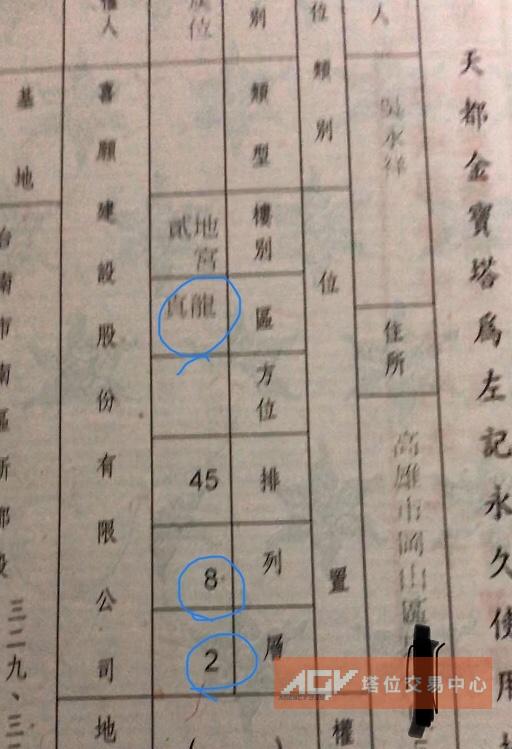 天都金寶塔為左記永久使用
人
住所
高雄市岡山區
位類別
位置
權
別
類型
樓別
區
方位
排
列
層
位
地宮
貳
龍
真
45
8
2
權人
喜願建設股份有限公司
地
基地
台南市南區
段
三二九、三
AGV 塔位交易中心